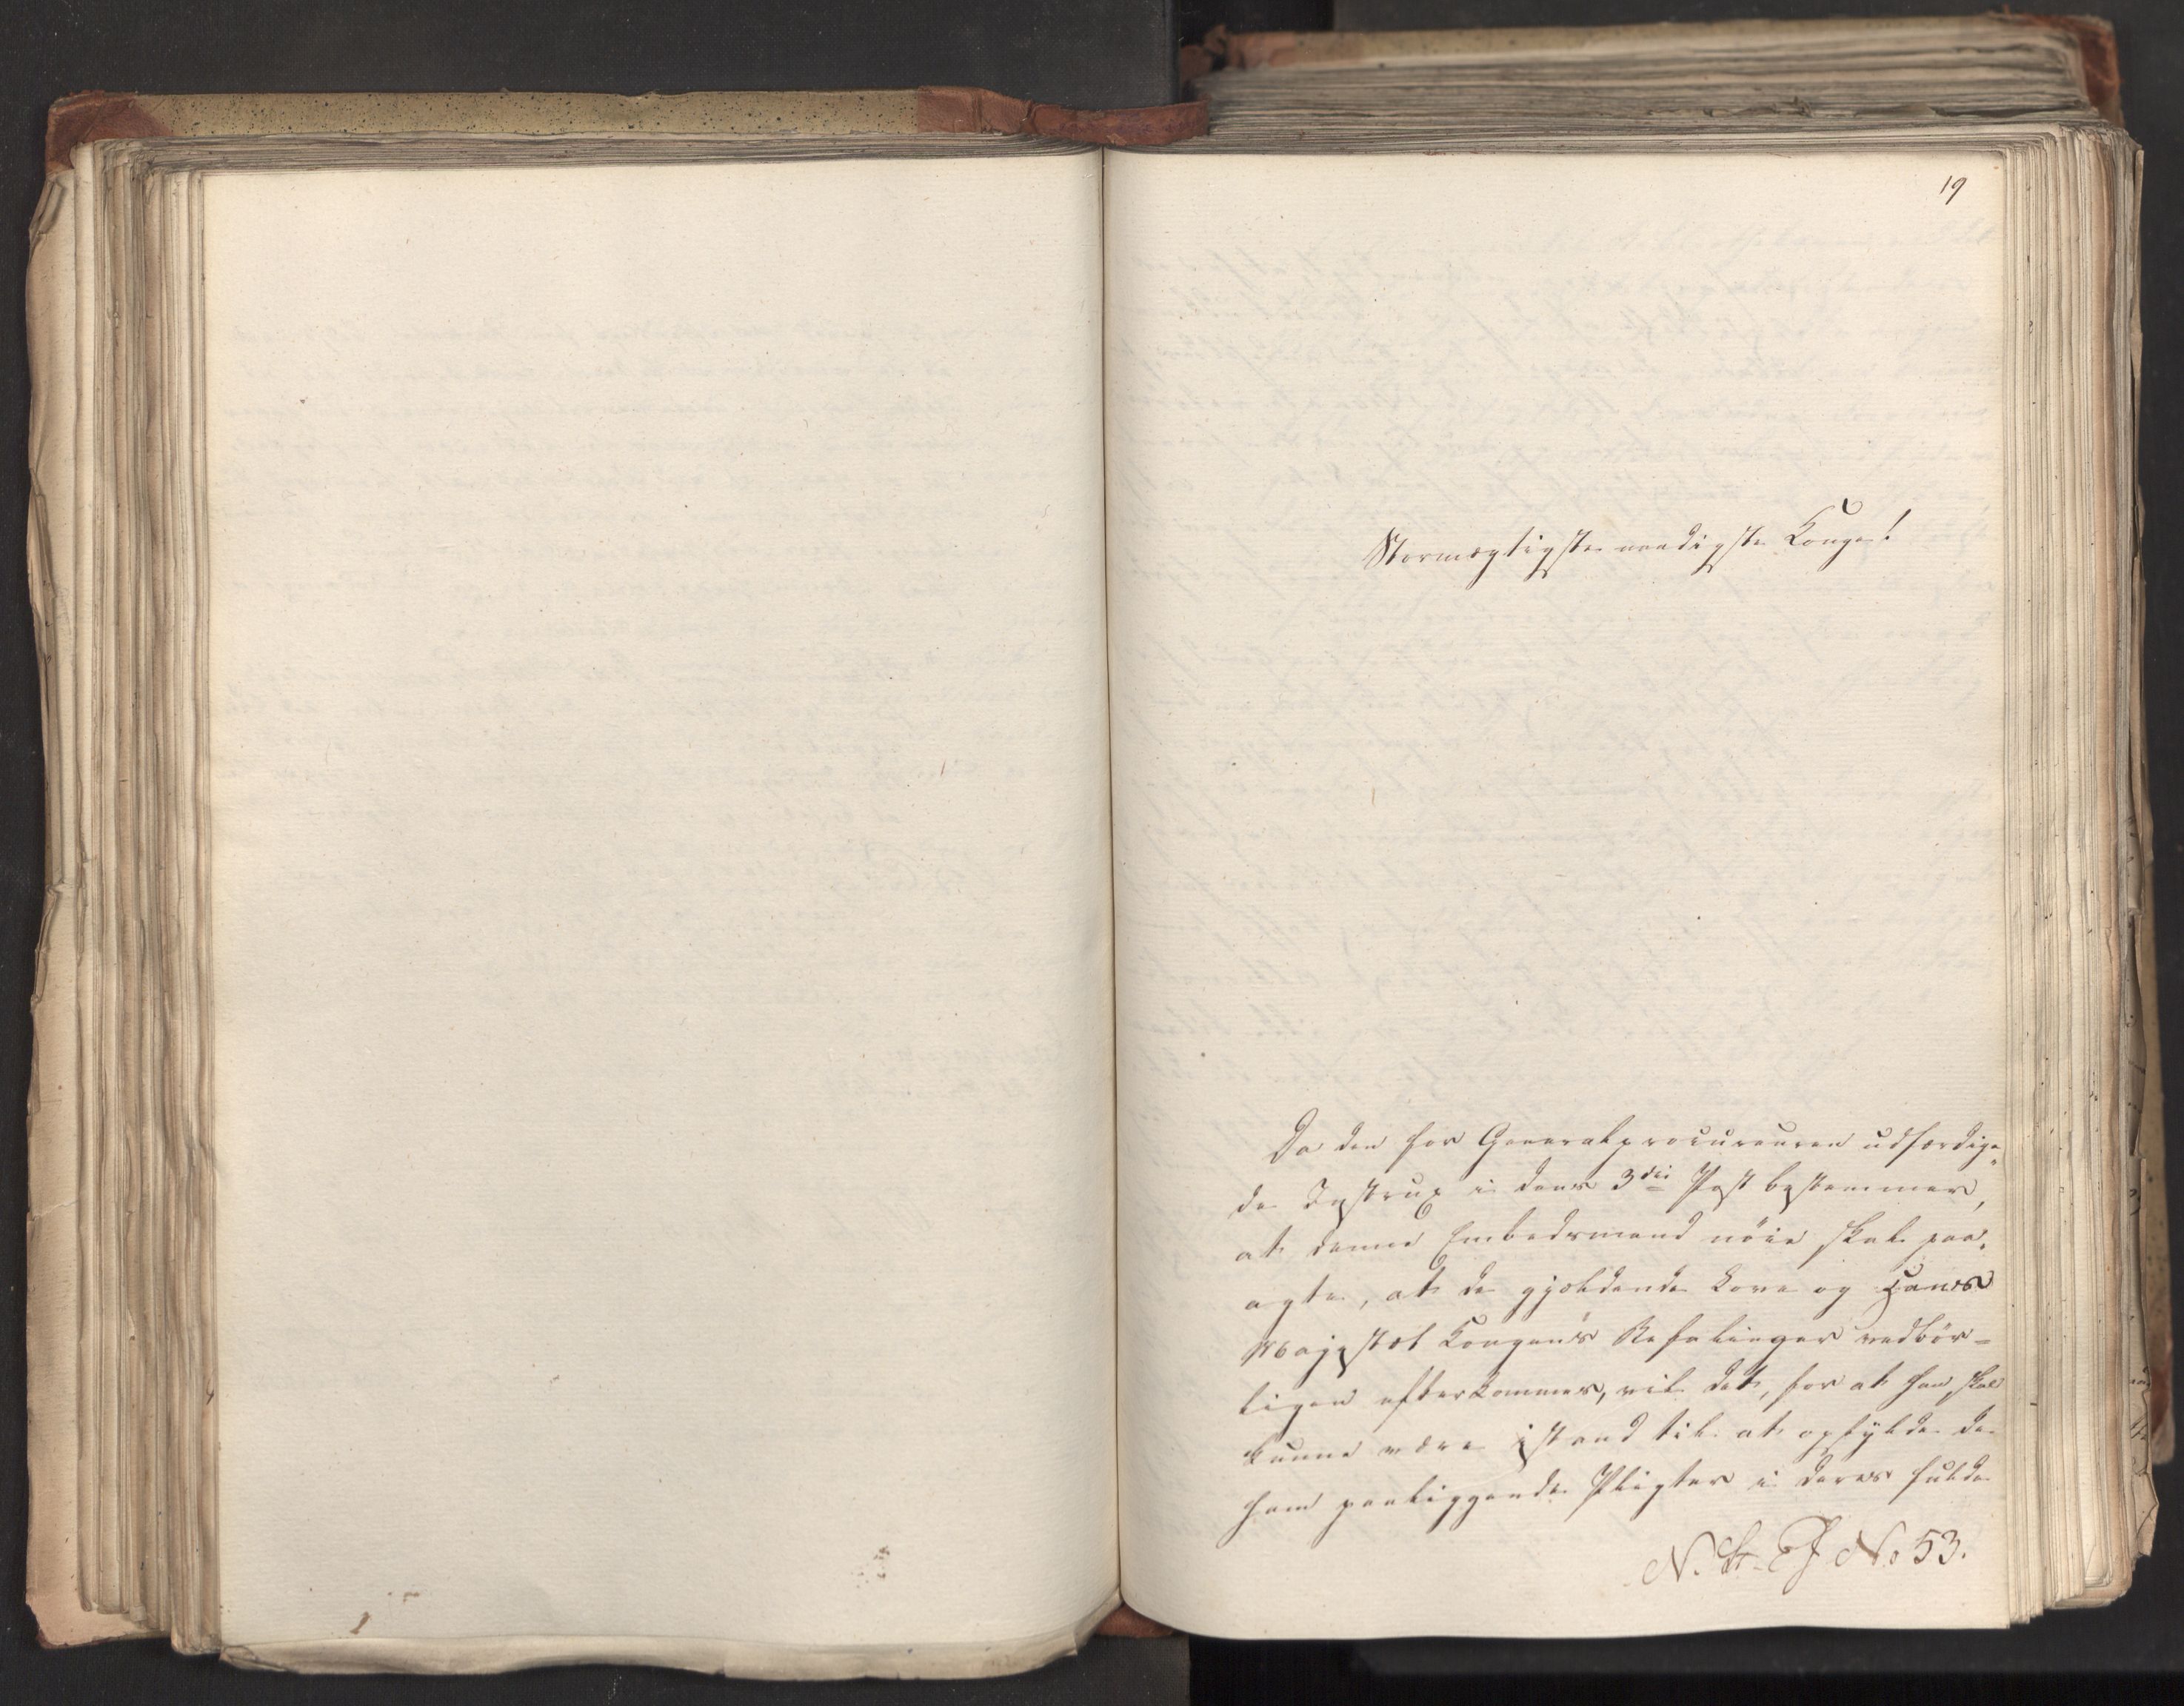 19
Stormægtigste naadigste Konge!
Da den for Generalprocureuren udfærdige„
de Instrux i dens 3die Post bestemmer,
at denne Embedsmand nöie skal paa„
agte, at de gjældende Love og Hans
Majestæt Kongen's Befalinger vedbör=
ligen efterkommes, vil det, for at han skal
kunne være istand til at opfylde de
ham paaliggende Pligter i deres fulde
N. St. J No 53.